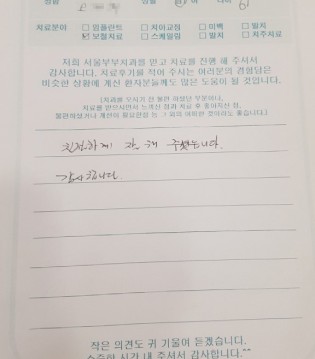 치료분야 □ 임플란트 □ 치아교정 □ 미백 □ 발치
☑ 보철치료 □ 스케일링 □ 충치 □ 치주치료
저희 서울부부치과를 믿고 치료를 진행 해 주셔서
감사합니다. 치료후기를 적어 주시는 여러분의 경험담은
비슷한 상황에 계신 환자분들께도 많은 도움이 될 것입니다.
치료를 받으시면서 느끼신 점과 치료 후 좋아지신 점,
친절하게 잘 해 주셨습니다.
감사합니다.
작은 의견도 귀 기울여 듣겠습니다.
소중한 시간 내 주셔서 감사합니다.^^